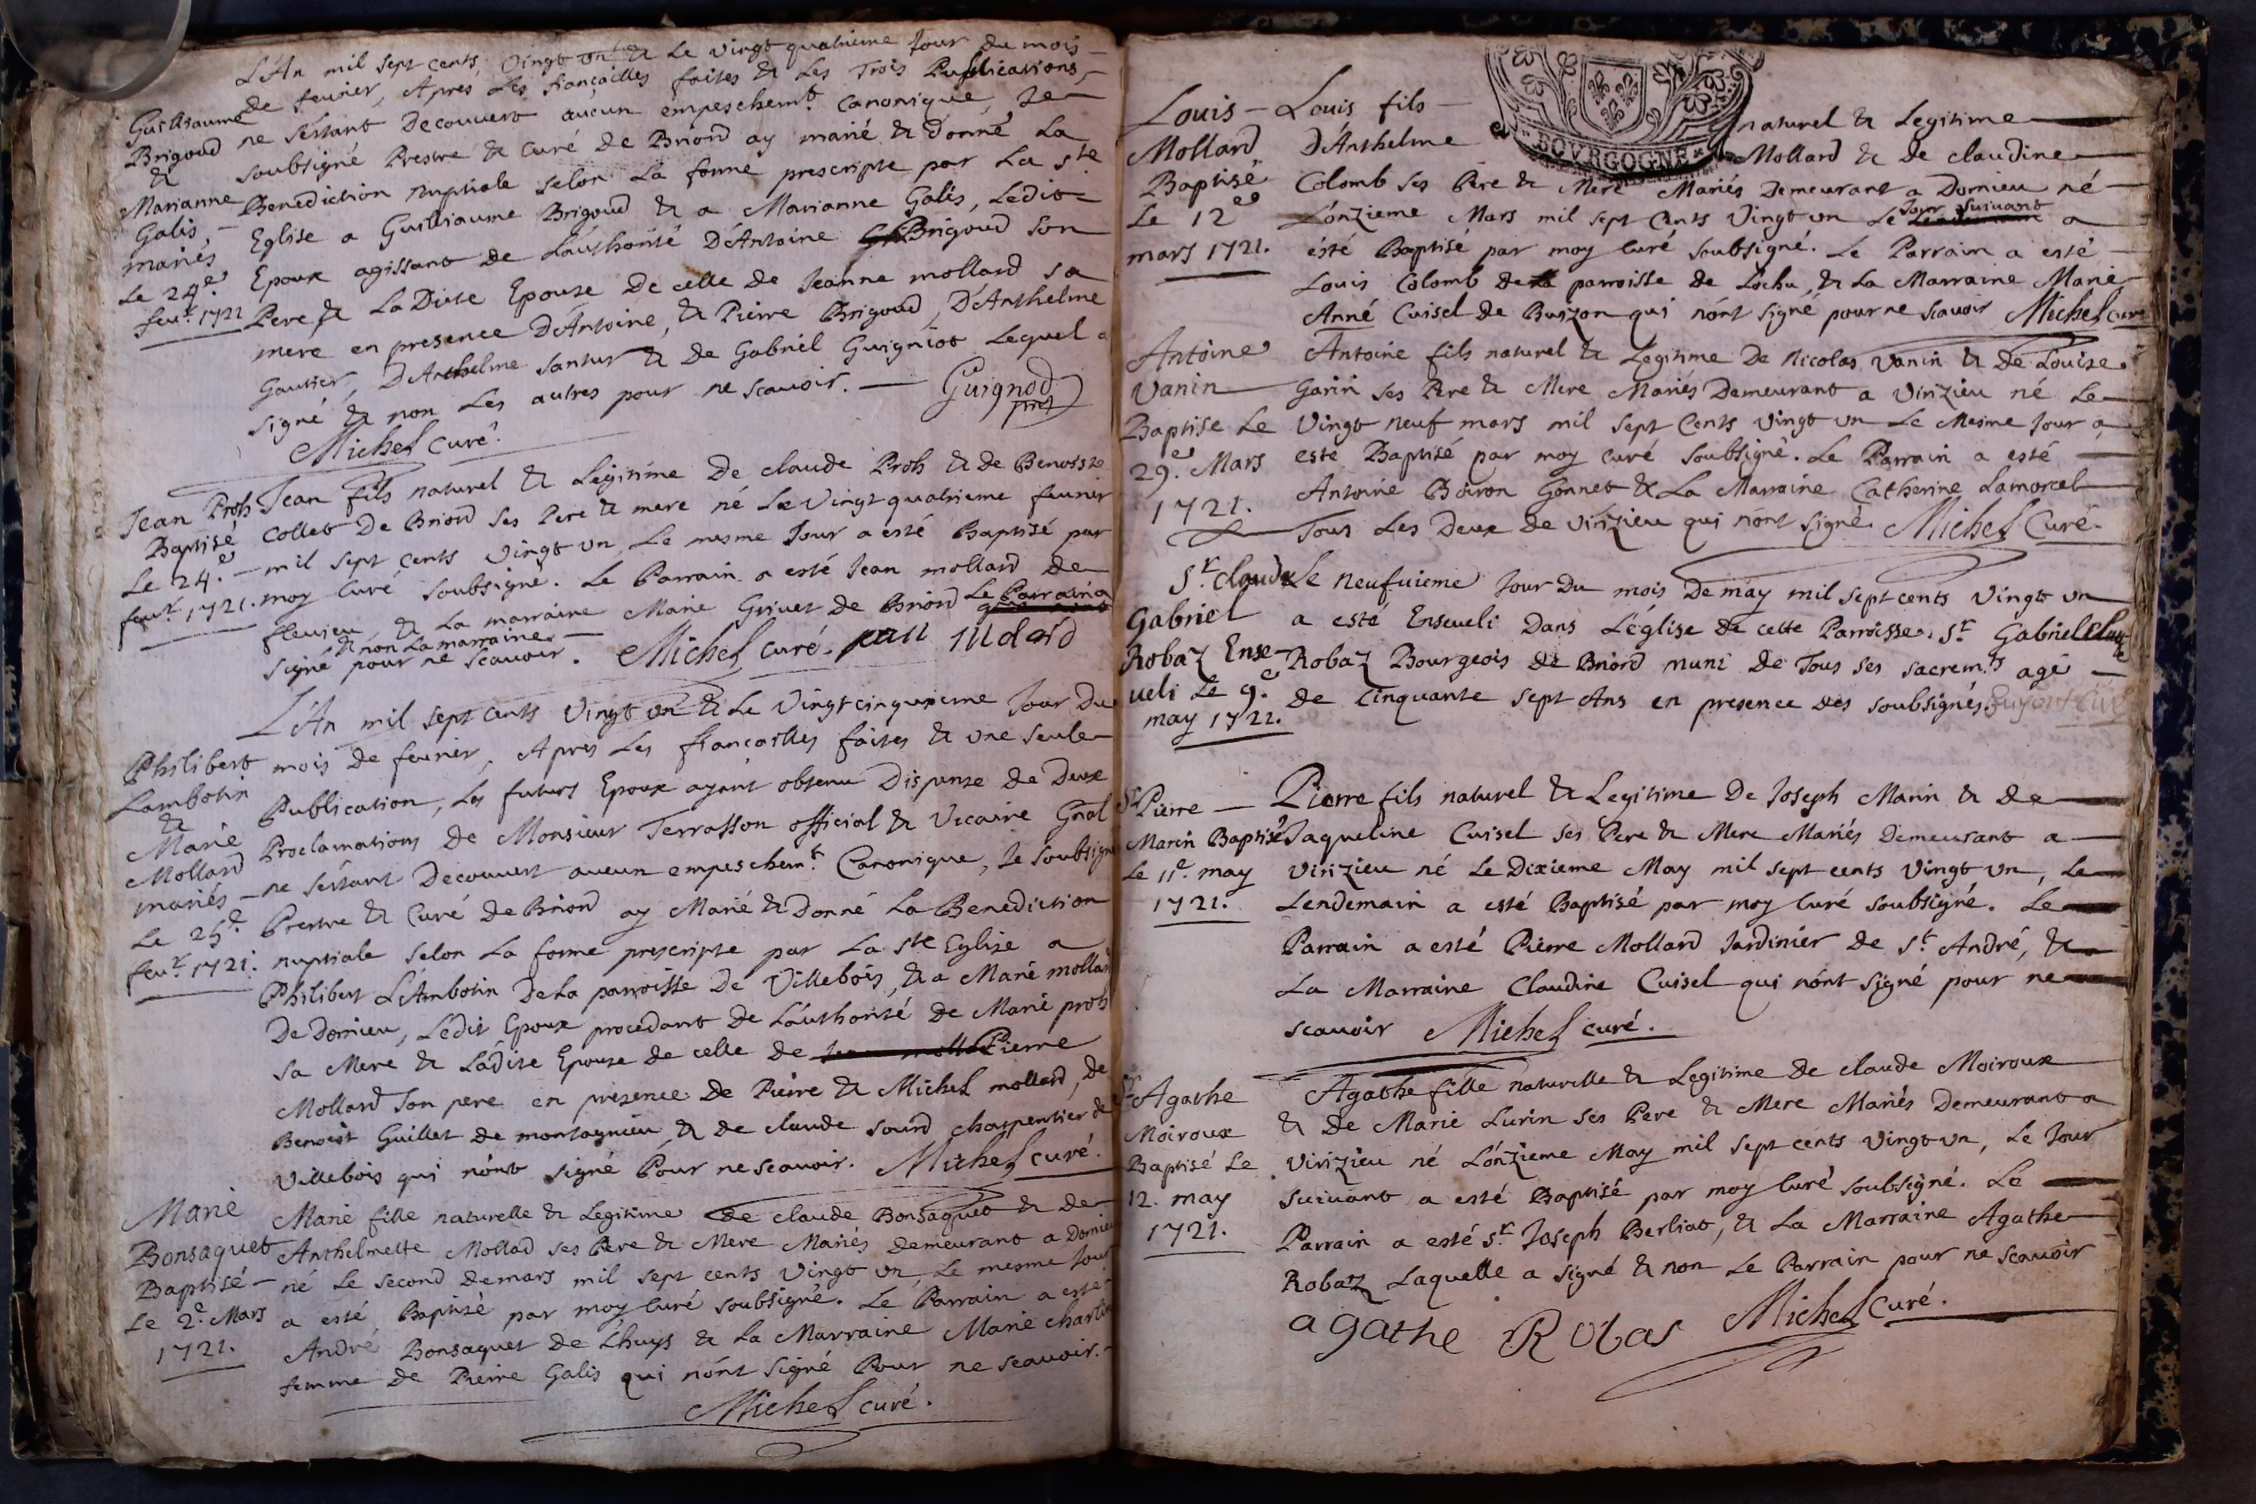 L'An mil sept cents vingt un & Le vingt quatrieme Jour du mois
de feurier, Apres Les fiançailles faites & Les Trois Publications,
ne s'estant Decouvert aucun empeschemt. Canonique, Je
soubsigné Prestre & Curé de Briord ay marié & Donné La
Benediction Nuptiale selon La forme prescripte par La ste
Eglise a Guilliaume Brigoud & a Marianne Galis, Ledit
Epoux agissant de L'authorité D'Antoine Brigoud son
Pere & La Dite Epouse De celle de Jeanne mollard sa
mere en presence D'Antoine, & Pierre Brigoud, D'Anthelme
Gautier, D'Anthelme santur & de Gabriel Guigniot Lequel a
signé & non Les autres pour ne scavoir. Guignod
Michel curé.
Guilliaume
Brigoud
&
Marianne
Galis
mariés
Le 24e
feur. 1721
Jean fils naturel & Legitime De claude Proh & de Benoiste
Collet De Briord ses Pere & mere né Le vingt quatrieme feurier
mil sept cents vingt un, Le mesme Jour a esté Baptisé par
moy Curé soubsigné. Le Parrain a esté Jean mollard de
fleurieu & La marraine Marie Griuet de Briord Le Parrain a
signé & non La marraine pour ne scavoir. Michel curé.
Jean Proh
Baptisé
Le 24.e
feur. 1721.
L'An mil sept cents vingt un & Le vingt cinquieme Jour Du
mois de feurier, Apres Les fiançailles faites & une seule
Publication, Les futurs Epoux ayant obtenu Dispense de Deux
Proclamations de Monsieur Terrasson official & Vicaire Gnal
ne s'estant Decouvert aucun empeschemt. Canonique, Je soubsigné
Prestre & Curé de Briord ay Marié & Donné La Benediction
nuptiale selon La forme prescripte par La ste Eglise a
Philibert L'Ambotin De La parroisse De Villebois, & a Marie mollard
De Dornieu, Ledit Epoux procedant de L'authorité de Marie proh
sa Mere & Ladite Epouse de celle de Pierre
Mollard son pere en presence de Pierre & Michel mollard, de
Benoist Guillet de montagnieu & de claude sourd charpentier de
Villebois qui n'ont signé Pour ne scavoir. Michel curé.
Philibert
Lambotin
&
Marie
Mollard
mariés
Le 25e
feur. 1721.
Marie fille naturelle & Legitime de claude Bonsaquet & de
Anthelmette Mollad ses Pere & Mere Mariés demeurant a Dornieu
né Le second de mars mil sept cents vingt un, Le mesme Jour
a esté Baptisé par moy Curé soubsigné. Le Parrain a esté
André Bonsaquet de Lhuys & La Marraine Marie
femme de Pierre Galis qui n'ont signé Pour ne scavoir.
Michel curé.
Marie
Bonsaquet
Baptisé
Le 2e Mars
1721.
BOVRGOGNE
Louis fils naturel & Legitime
D'Anthelme Mollard & de claudine
Colomb ses Pere & Mere Mariés Demeurant a Dornieu né
L'onzieme Mars mil sept Cents vingt un Le Jour suivant a
ésté Baptisé par moy Curé soubsigné. Le Parrain a esté
Louis Colomb de parroisse de Lochu, & La Marraine Marie
Anné Cuisel de Buizon qui n'ont signé pour ne scavoir Michel curé
Louis
Mollard
Baptisé
Le 12e
mars 1721.
Antoine fils naturel & Legitime De Nicolas vanin & De Louise
Garin ses Pere & Mere Mariés Demeurant a Virizieu né Le
vingt neuf mars mil sept Cents vingt un Le mesme Jour a
esté Baptisé par moy curé soubsigné. Le Parrain a esté
Antoine Boiron Gonnet & La Marraine Catherine Lamorcel
Tous Les Deux de Virizieu qui n'ont signé Michel Curé.
Antoine
Vanin
Baptise Le
29.e Mars
1721.
Le neufuieme Jour Du mois De may mil sept cents vingt un
a esté Enseueli Dans L'église de cette Parroisse, sr Gabriel Claude
Robaz Bourgeois de Briord muni de Tous ses sacremts. agé
de Cinquante sept Ans en presence des soubsignés.
sr. claude
Gabriel
Robaz Ense-
ueli Le 9.e
may 1721.
Pierre fils naturel & Legitime De Joseph Marin & de
Jaqueline Cuisel ses Pere & Mere Mariés Demeurant a
Virizieu né Le Dixieme May mil sept cents vingt un, Le
Lendemain a esté Baptisé par moy Curé soubsigné. Le
Parrain a esté Pierre Mollard Jardinier de st. André, &
La Marraine Claudine Cuisel qui n'ont signé pour ne
scavoir Michel curé.
Pierre
Marin Baptisé
Le 11e. may
1721.
Agathe fille naturelle & Legitime de claude Moiroux
& De Marie Lurin ses Pere & Mere Mariés Demeurant a
Virizieu né L'onzieme May mil sept cents vingt un, Le Jour
suivant a esté Baptisé par moy Curé soubsigné. Le
Parrain a esté sr. Joseph Berliat, & La Marraine Agathe
Robaz Laquelle a signé & non Le Parrain pour ne scavoir
agathe Robas Michel Curé.
Agathe
Moiroux
Baptisé Le
12. may
1721.